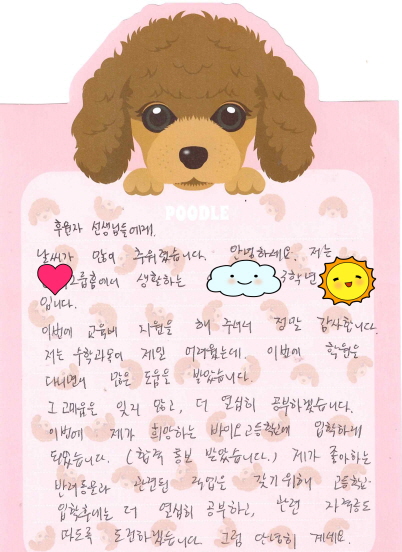 POODLE
후원자 선생님들에게.
날씨가 많이 추워졌습니다. 안녕하세요. 저는
그룹홈에서 생활하는 3학년
입니다.
이번에 교육비 지원을 해 주셔서 정말 감사합니다.
저는 수학과목이 제일 어려웠는데, 이번에 학원을
다니면서 많은 도움을 받았습니다.
그 고마움은 잊지 않고, 더 열심히 공부하겠습니다.
이번에 제가 희망하는 바이오고등학교에 입학하게
되었습니다. (합격 통보 받았습니다.) 제가 좋아하는
반려동물과 관련된 직업을 갖기위해 고등학교
입학후에는 더 열심히 공부하고, 관련 자격증도
따도록 도전하겠습니다 그럼 안녕히 계세요.